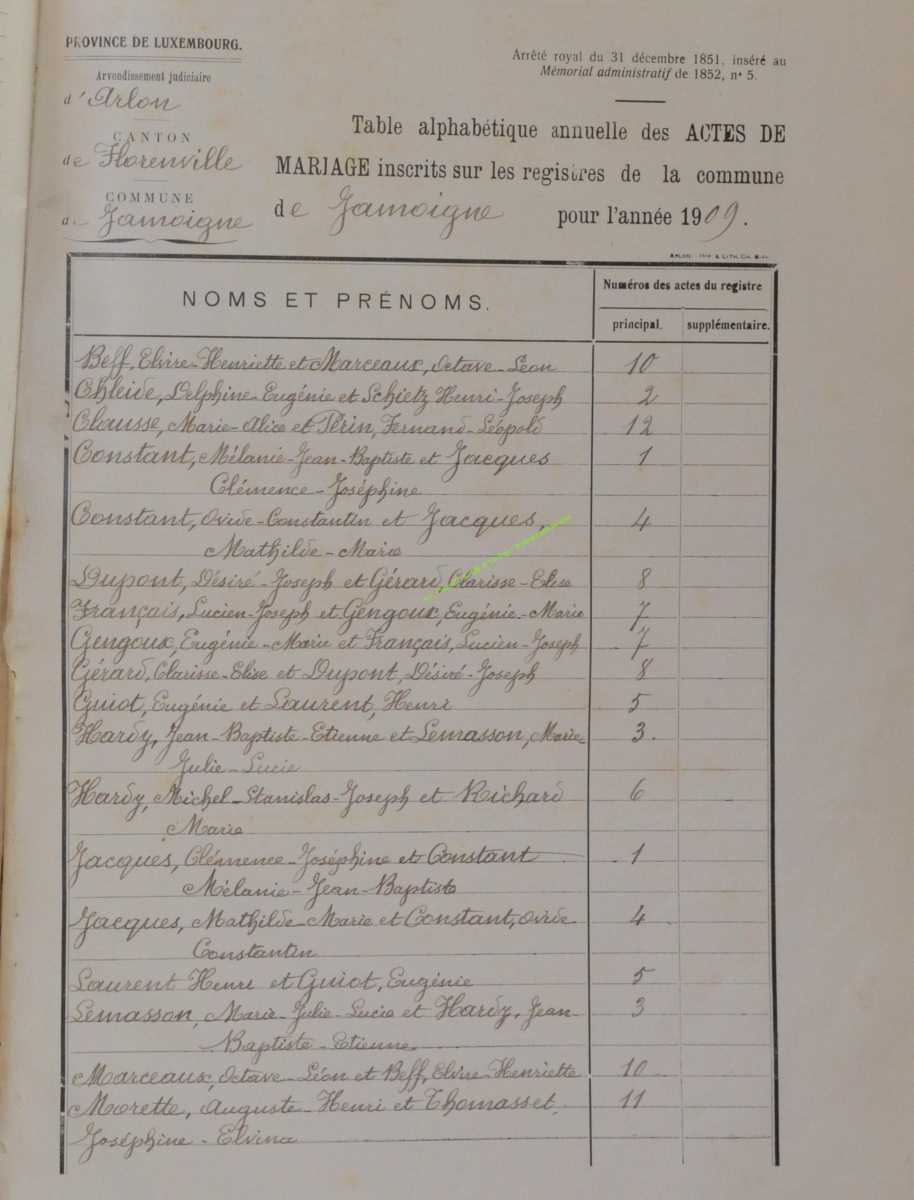 PROVINCE DE LUXEMBOURG.
Arrondissement judiciaire
d'Arlon
CANTON
de Florenville
COMMUNE
de Jamoigne
Arrêté royal du 31 décembre 1851, inséré au
Mémorial administratif de 1852, n° 5.
Table alphabétique annuelle des ACTES DE
MARIAGE inscrits sur les registres de la commune
de Jamoigne pour l'année 1909.
NOMS ET PRÉNOMS.
Numéros des actes du registre
principal. supplémentaire.
Beff, Elvire-Henriette et Marceaux, Octave-Léon 10
Chleide, Delphine-Eugénie et Schietz Henri-Joseph 2
Clausse, Marie-Alice et Périn, Fernand-Léopold 12
Constant, Mélanie-Jean-Baptiste et Jacques 1
Clémence-Joséphine
Constant, Ovide-Constantin et Jacques, 4
Mathilde-Marie
Dupont, Désiré-Joseph et Gérard, Clarisse-Elise 8
Français, Lucien-Joseph et Gengoux, Eugénie-Marie 7
Gengoux, Eugénie-Marie et Français, Lucien-Joseph 7
Gérard, Clarisse-Elise et Dupont, Désiré-Joseph 8
Guiot, Eugénie et Laurent, Henri 5
Hardy, Jean-Baptiste-Etienne et Lemasson, Marie- 3.
Julie-Lucie
Hardy, Michel-Stanislas-Joseph et Richard 6
Marie
Jacques, Clémence-Joséphine et Constant 1
Mélanie-Jean-Baptiste
Jacques, Mathilde-Marie et Constant, Ovide 4
Constantin
Laurent Henri et Guiot, Eugénie 5
Lemasson, Marie-Julie-Lucie et Hardy, Jean- 3
Baptiste-Etienne
Marceaux, Octave-Léon et Beff, Elvire-Henriette 10
Morette, Auguste-Henri et Thomasset, 11
Joséphine-Elvina